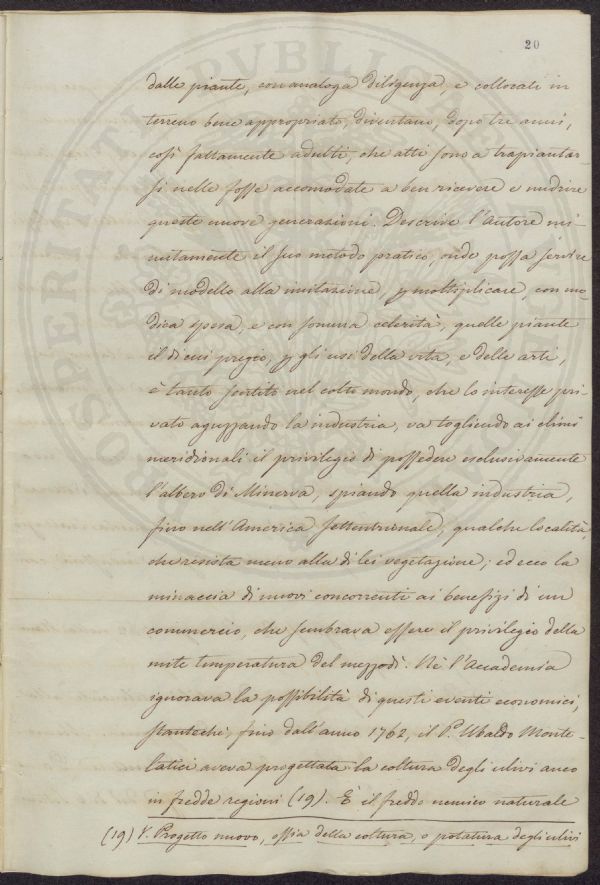 20
dalle piante, con analoga diligenza, e collocati in
terreno bene appropriato, diventano, dopo tre anni,
così fattamente adulti, che atti sono a trapiantar-
si nelle fosse accomodate a ben ricevere e nudrire
queste nuove generazioni. Descrive l'Autore mi-
nutamente il suo metodo pratico, onde possa servire
di modello alla imitazione, p moltiplicare, con mo-
dica spesa, e con somma celerità, quelle piante
il di cui pregio, p gli usi della vita, e delle arti,
è tanto sentito nel colto mondo, che lo interesse pri-
vato aguzzando la industria, va togliendo ai climi
meridionali il privilegio di possedere esclusivamente
l'albero di Minerva, spiando quella industria,
fino nell'America settentrionale, qualche località,
che resista meno alla di lei vegetazione; ed ecco la
minaccia di nuovi concorrenti ai benefizi di un
commercio, che sembrava essere il privilegio della
mite temperatura del mezzodì. Nè l'Accademia
ignorava la possibilità di questi eventi economici,
stantechè, fino dall'anno 1762, il P. Ubaldo Monte-
latici aveva progettata la coltura degli ulivi anco
in fredde regioni (19). È il freddo nemico naturale
(19) V. Progetto nuovo, ossia della coltura, e potatura degli ulivi
PROSPERITATI PUBLICAE